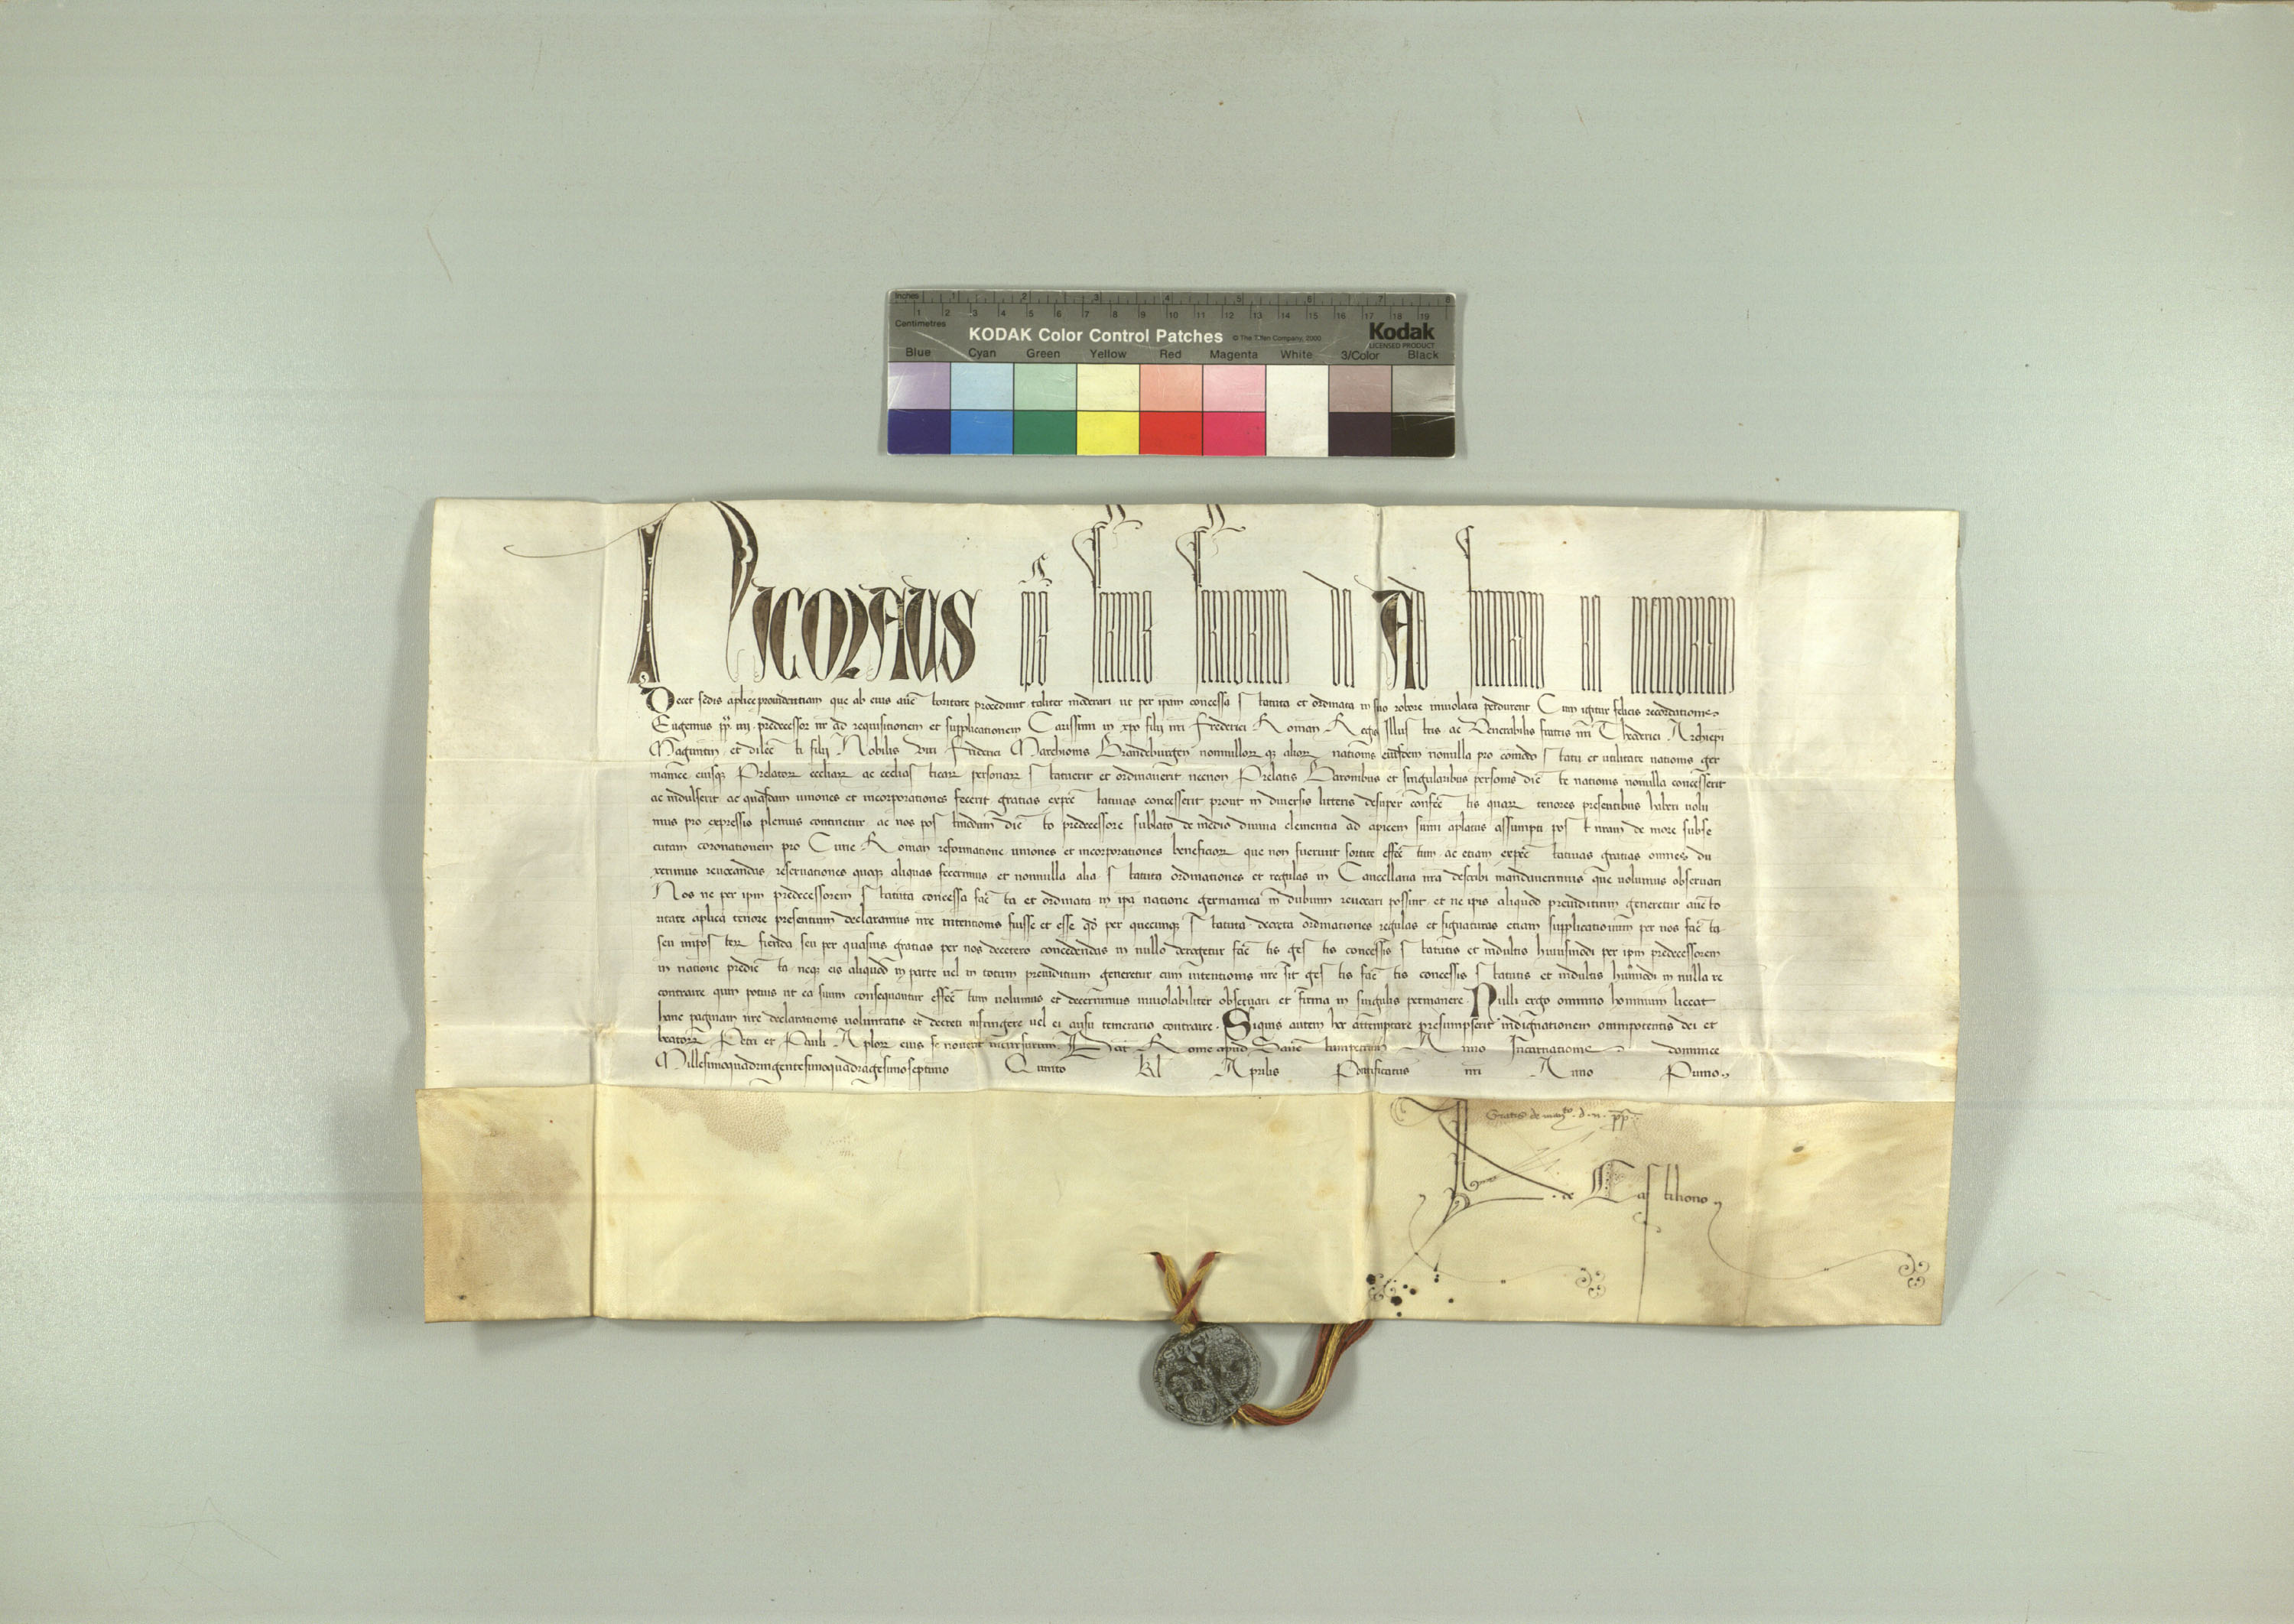 Inches 1 2 3 4 5 6 7 8
Centimetres 1 2 3 4 5 6 7 8 9 10 11 12 13 14 15 16 17 18 19
KODAK Color Control Patches © The Tiffen Company, 2000 Kodak
LICENSED PRODUCT
Blue Cyan Green Yellow Red Magenta White 3/Color Black
NICOLAUS eps seruus seruorum dei Ad futuram rei memoriam
Decet sedis aplice prouidentiam que ab eius auctoritate procedunt taliter moderari ut per ipam concessa statuta et ordinata in suo robore inuiolata perdurent Cum igitur felicis recordationis
Eugenius pp iiii predecessor nr ad requisitionem et supplicationem Carissimi in xpo filij nri Frederici Roman Regis Illustris ac Venerabilis fratris nri Theoderici Archiepi
Maguntin et dilecti filij Nobilis viri Friderici Marchionis Brandeburgen nonnullorz qz aliorz nationis eiusdem nonnulla pro comodo statu et utilitate nationis ger
manice eiusqz Prelatorz eccliarz ac ecclasticarz personarz statuerit et ordinauerit necnon Prelatis Baronibus et singularibus personis dicte nationis nonulla concesserit
ac indulserit ac quasdam uniones et incorporationes fecerit gratias expectatiuas concesserit prout in diuersis litteris desuper confectis quarz tenores presentibus haberi uolu
mus pro expressis plenius continetur ac nos postmodum dicto predecessore sublato de medio diuina clementia ad apicem sumi aplatus assumpti post nram de more subse
cutam coronationem pro Curie Roman reformatione uniones et incorporationes beneficiorz que non fuerunt sortite effectum ac etiam expectatiuas gratias omnes du
xerimus reuocandas reseruationes quoqz aliquas fecerimus et nonnulla alia statuta ordinationes et regulas in Cancellaria nra describi mandauerimus que uolumus obseruari
Nos ne per ipm predecessorem statuta concessa facta et ordinata in ipa natione germanica in dubium reuocari possint et ne ipis aliquod preiuditium generetur aucto
ritate aplica tenore presentium declaramus nre intentionis fuisse et esse qd per quecunqz statuta decreta ordinationes regulas et signaturas etiam supplicationum per nos facta
seu imposterz fienda seu per quasuis gratias per nos decetero concedendas in nullo derogetur factis gestis concessis statutis et indultis huiusmodi per ipm predecessorem
in natione predicta neqz eis aliquod in parte uel in totum preiuditium generetur cum intentionis nre sit gestis factis concessis statutis et indultis humodi in nulla re
contraire quin potius ut ea suum consequantur effectum uolumus et decernimus inuiolabiliter obseruari et firma in singulis permanere Nulli ergo omnino hominum liceat
hanc paginam nre declarationis uoluntatis et decreti infringere uel ei ausu temerario contraire Siquis autem hoc attemptare presumpserit indignationem omnipotentis dei et
beatorz Petri et Pauli Aplorz eius se nouerit incursurum Dat Rome apud Sanctumpetrum Anno Incarnationis dominice
Millesimoquadringentesimoquadragesimoseptimo Quinto kl Aprilis Pontificatus nri Anno Primo
Gratis de manto d n pp
de Castiliono